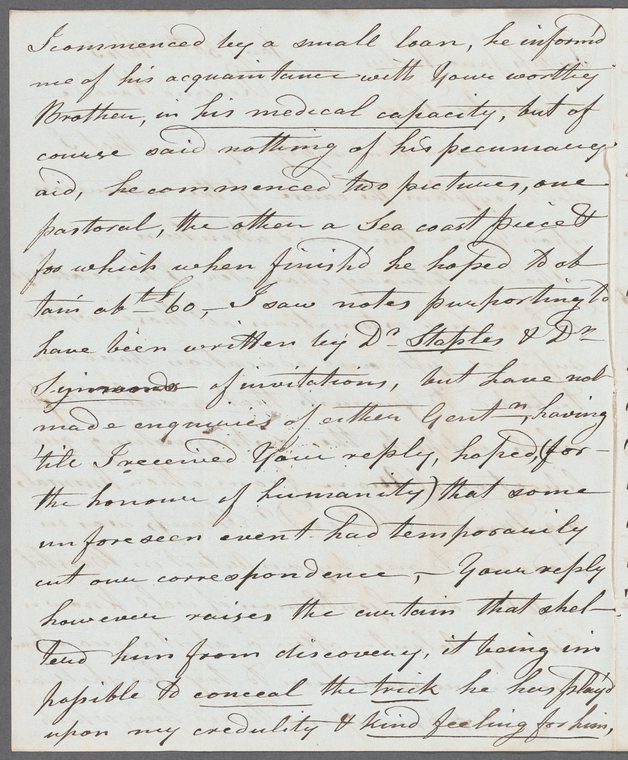 I commenced by a small loan, he inform'd
me of his acquaintance with Your worthy
Brother, in his medical capacity, but of
course said nothing of his pecuniary
aid, he commenced two pictures, one
pastoral, the other a Sea coast piece &
for which when finish'd he hoped to ob
tain abt £60,- I saw notes purporting to
have been written by Dr Staples & Dr
Symmonds of invitations, but have not
made enquiries of either Gentn, having
'till I received Your reply, hoped, (for
the honour of humanity) that some
unforeseen event had temporarily
cut our correspondence,- Your reply
however raises the curtain that shel-
terd him from discovery, it being im
possible to conceal the trick he has play'd
upon my credulity & kind feeling for him,